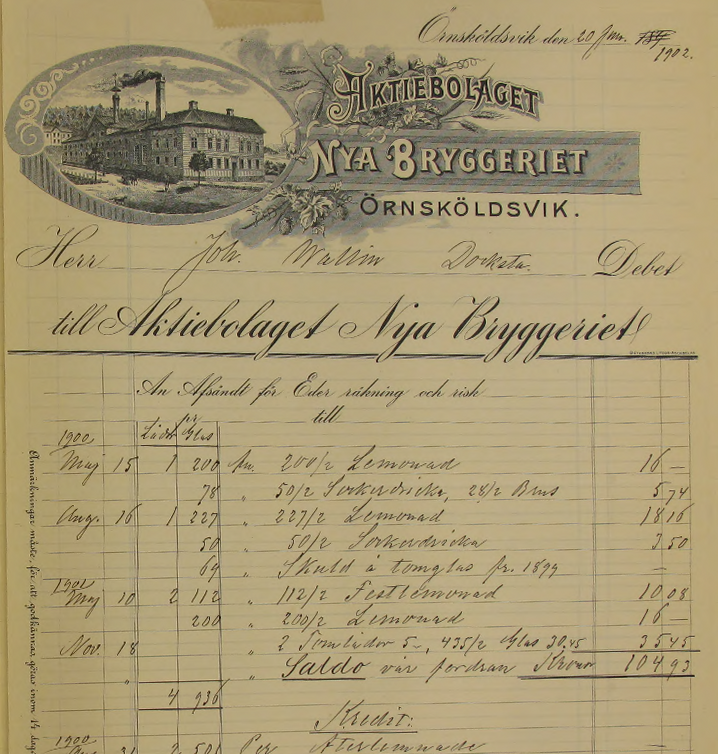 Örnsköldsvik den 20 Jan. 1902.
AKTIEBOLAGET
NYA BRYGGERIET
ÖRNSKÖLDSVIK.
Herr Joh. Wallin Docksta. Debet
till Aktiebolaget Nya Bryggeriet
An Afsändt för Eder räkning och risk
till
1900 Lådr Glas
Maj 15 1 200 200/2 Lemonad 16 —
78 " 50/2 Sockerdricka, 28/2 Brus 5 74
Aug. 16 1 227 " 227/2 Lemonad 18 16
50 " 50/2 Sockerdricka 3 50
69 " Skuld å tomglas fr. 1899 —
1901
Maj 10 2 112 " 112/2 Festlemonad 10 08
200 " 200/2 Lemonad 16 —
Nov. 18 " 2 Tomlådor 5-, 435/2 Glas 30,45 35 45
" " Saldo vår fordran Kronor 104 93
4 936
Kredit:
1900
31 2 Per Återlemnade —
Anmärkningar måste, för att godkännas, göras inom 14 dag